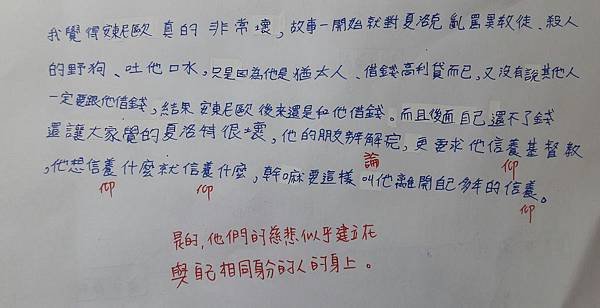 我覺得安東尼歐真的非常壞，故事一開始就對夏洛克亂罵異教徒、殺人
的野狗、吐他口水，只是因為他是猶太人、借錢高利貸而已，又沒有說其他人
一定要跟他借錢，結果安東尼歐後來還是和他借錢。而且後面自己還不了錢
還讓大家覺的夏洛特很壞，他的朋友辨解完，更要求他信養基督教
論
仰
，他想信養什麼就信養什麼，幹嘛要這樣叫他離開自己多年的信養。
仰
仰
仰
是的，他們的慈悲似乎建立在
與自己相同身份的人的身上。